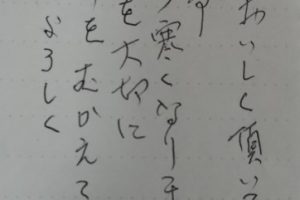 おいしく頂いて
寒くなりま
を大切に
をむかえて
よろしく